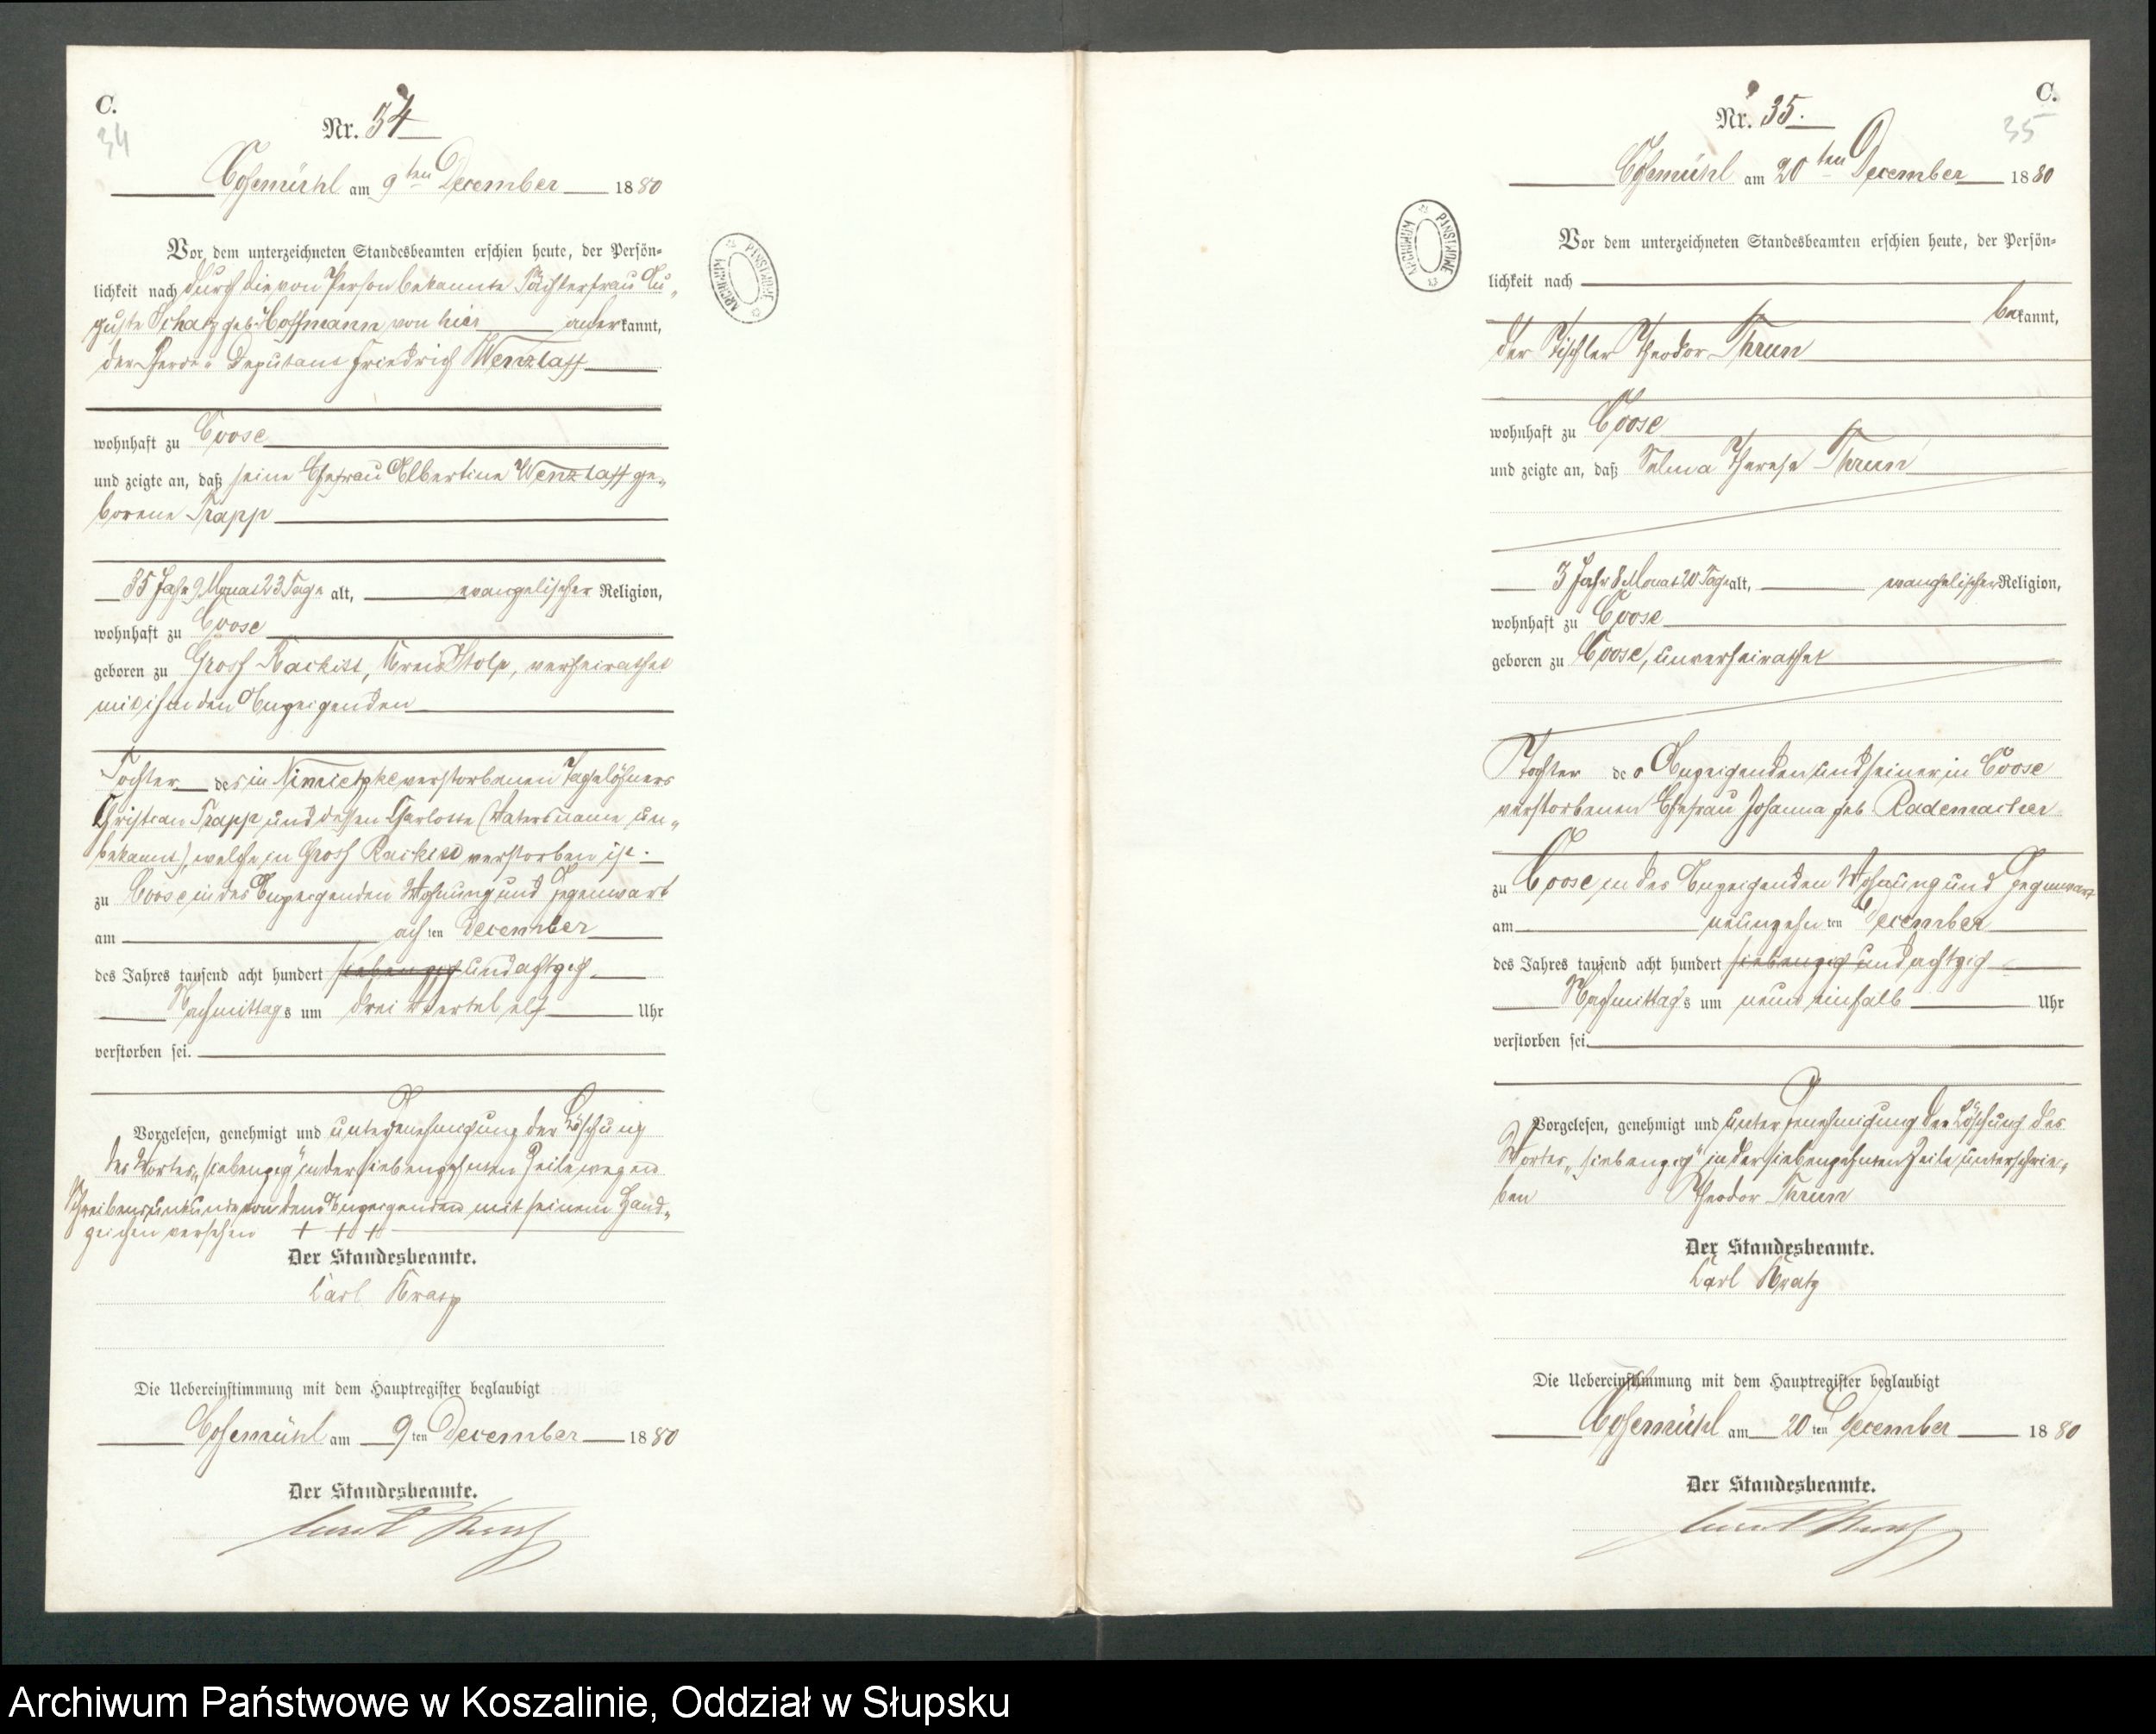 C.
34
Nr. 34
Cosemühl am 9ten December 1880
Vor dem unterzeichneten Standesbeamten erschien heute, der Persön-
lichkeit nach durch die von Person bekannte Pächterfrau Au-
guste Schatz geb. Hoffmann von hier anerkannt,
der Pferde- Deputant Friedrich Wenzlaff
wohnhaft zu Coose
und zeigte an, daß seine Ehefrau Albertine Wenzlaff ge-
borene Trapp
35 Jahr 9 Monat 23 Tage alt, evangelischer Religion,
wohnhaft zu Coose
geboren zu Gross Rackitt, Kreis Stolp, verheirathet
mit ihm den Anzeigenden
Tochter des in Nimietzke verstorbenen Tagelöhners
Christian Trapp und dessen Charlotte (Vatersname un-
bekannt), welche in Gross Rackitt verstorben ist.
zu Coose in des Anzeigenden Wohnung und Gegenwart
am achten December
des Jahres tausend acht hundert siebenzig und achtzig
Nachmittags um drei Viertel elf Uhr
verstorben sei.
Vorgelesen, genehmigt und unter Genehmigung der Löschung
des Wortes „siebenzig" in der siebenzehnten Zeile wegen
Schreibensunkunde von dem Anzeigenden mit seinem Hand-
zeichen versehen + + +
Der Standesbeamte.
Carl Kratz
Die Uebereinstimmung mit dem Hauptregister beglaubigt
Cosemühl am 9ten December 1880
Der Standesbeamte.
Carl Kratz
ARCHIWUM PAŃSTWOWE
C.
35
Nr. 35.
Cosemühl am 20ten December 1880
ARCHIWUM PAŃSTWOWE
Vor dem unterzeichneten Standesbeamten erschien heute, der Persön-
lichkeit nach
bekannt,
der Tischler Theodor Thrun
wohnhaft zu Coose
und zeigte an, daß Selma Therese Thrun
3 Jahr 8 Monat 20 Tage alt, evangelischer Religion,
wohnhaft zu Coose
geboren zu Coose, unverheirathet
Tochter des Anzeigenden und seiner in Coose
verstorbenen Ehefrau Johanna geb. Rademacher
zu Coose in des Anzeigenden Wohnung und Gegenwart
am neunzehnten December
des Jahres tausend acht hundert siebenzig und achtzig
Nachmittags um neun einhalb Uhr
verstorben sei.
Vorgelesen, genehmigt und unter Genehmigung der Löschung des
Wortes „siebenzig" in der siebenzehnten Zeile unterschrie-
ben Theodor Thrun
Der Standesbeamte.
Carl Kratz
Die Uebereinstimmung mit dem Hauptregister beglaubigt
Cosemühl am 20ten December 1880
Der Standesbeamte.
Carl Kratz
Archiwum Państwowe w Koszalinie, Oddział w Słupsku